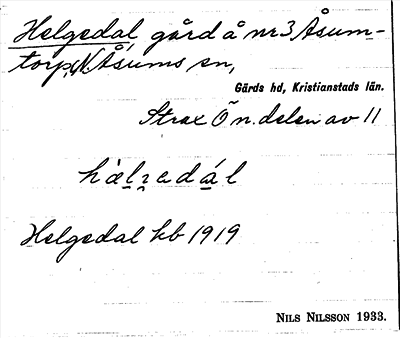 Helgedal, gård å nr 3 Åsum-
torp, N. Åsums sn,
Gärds hd, Kristianstads län.
Strax Ö n. delen av 11
Helgedal kb 1919
NILS NILSSON 1933.